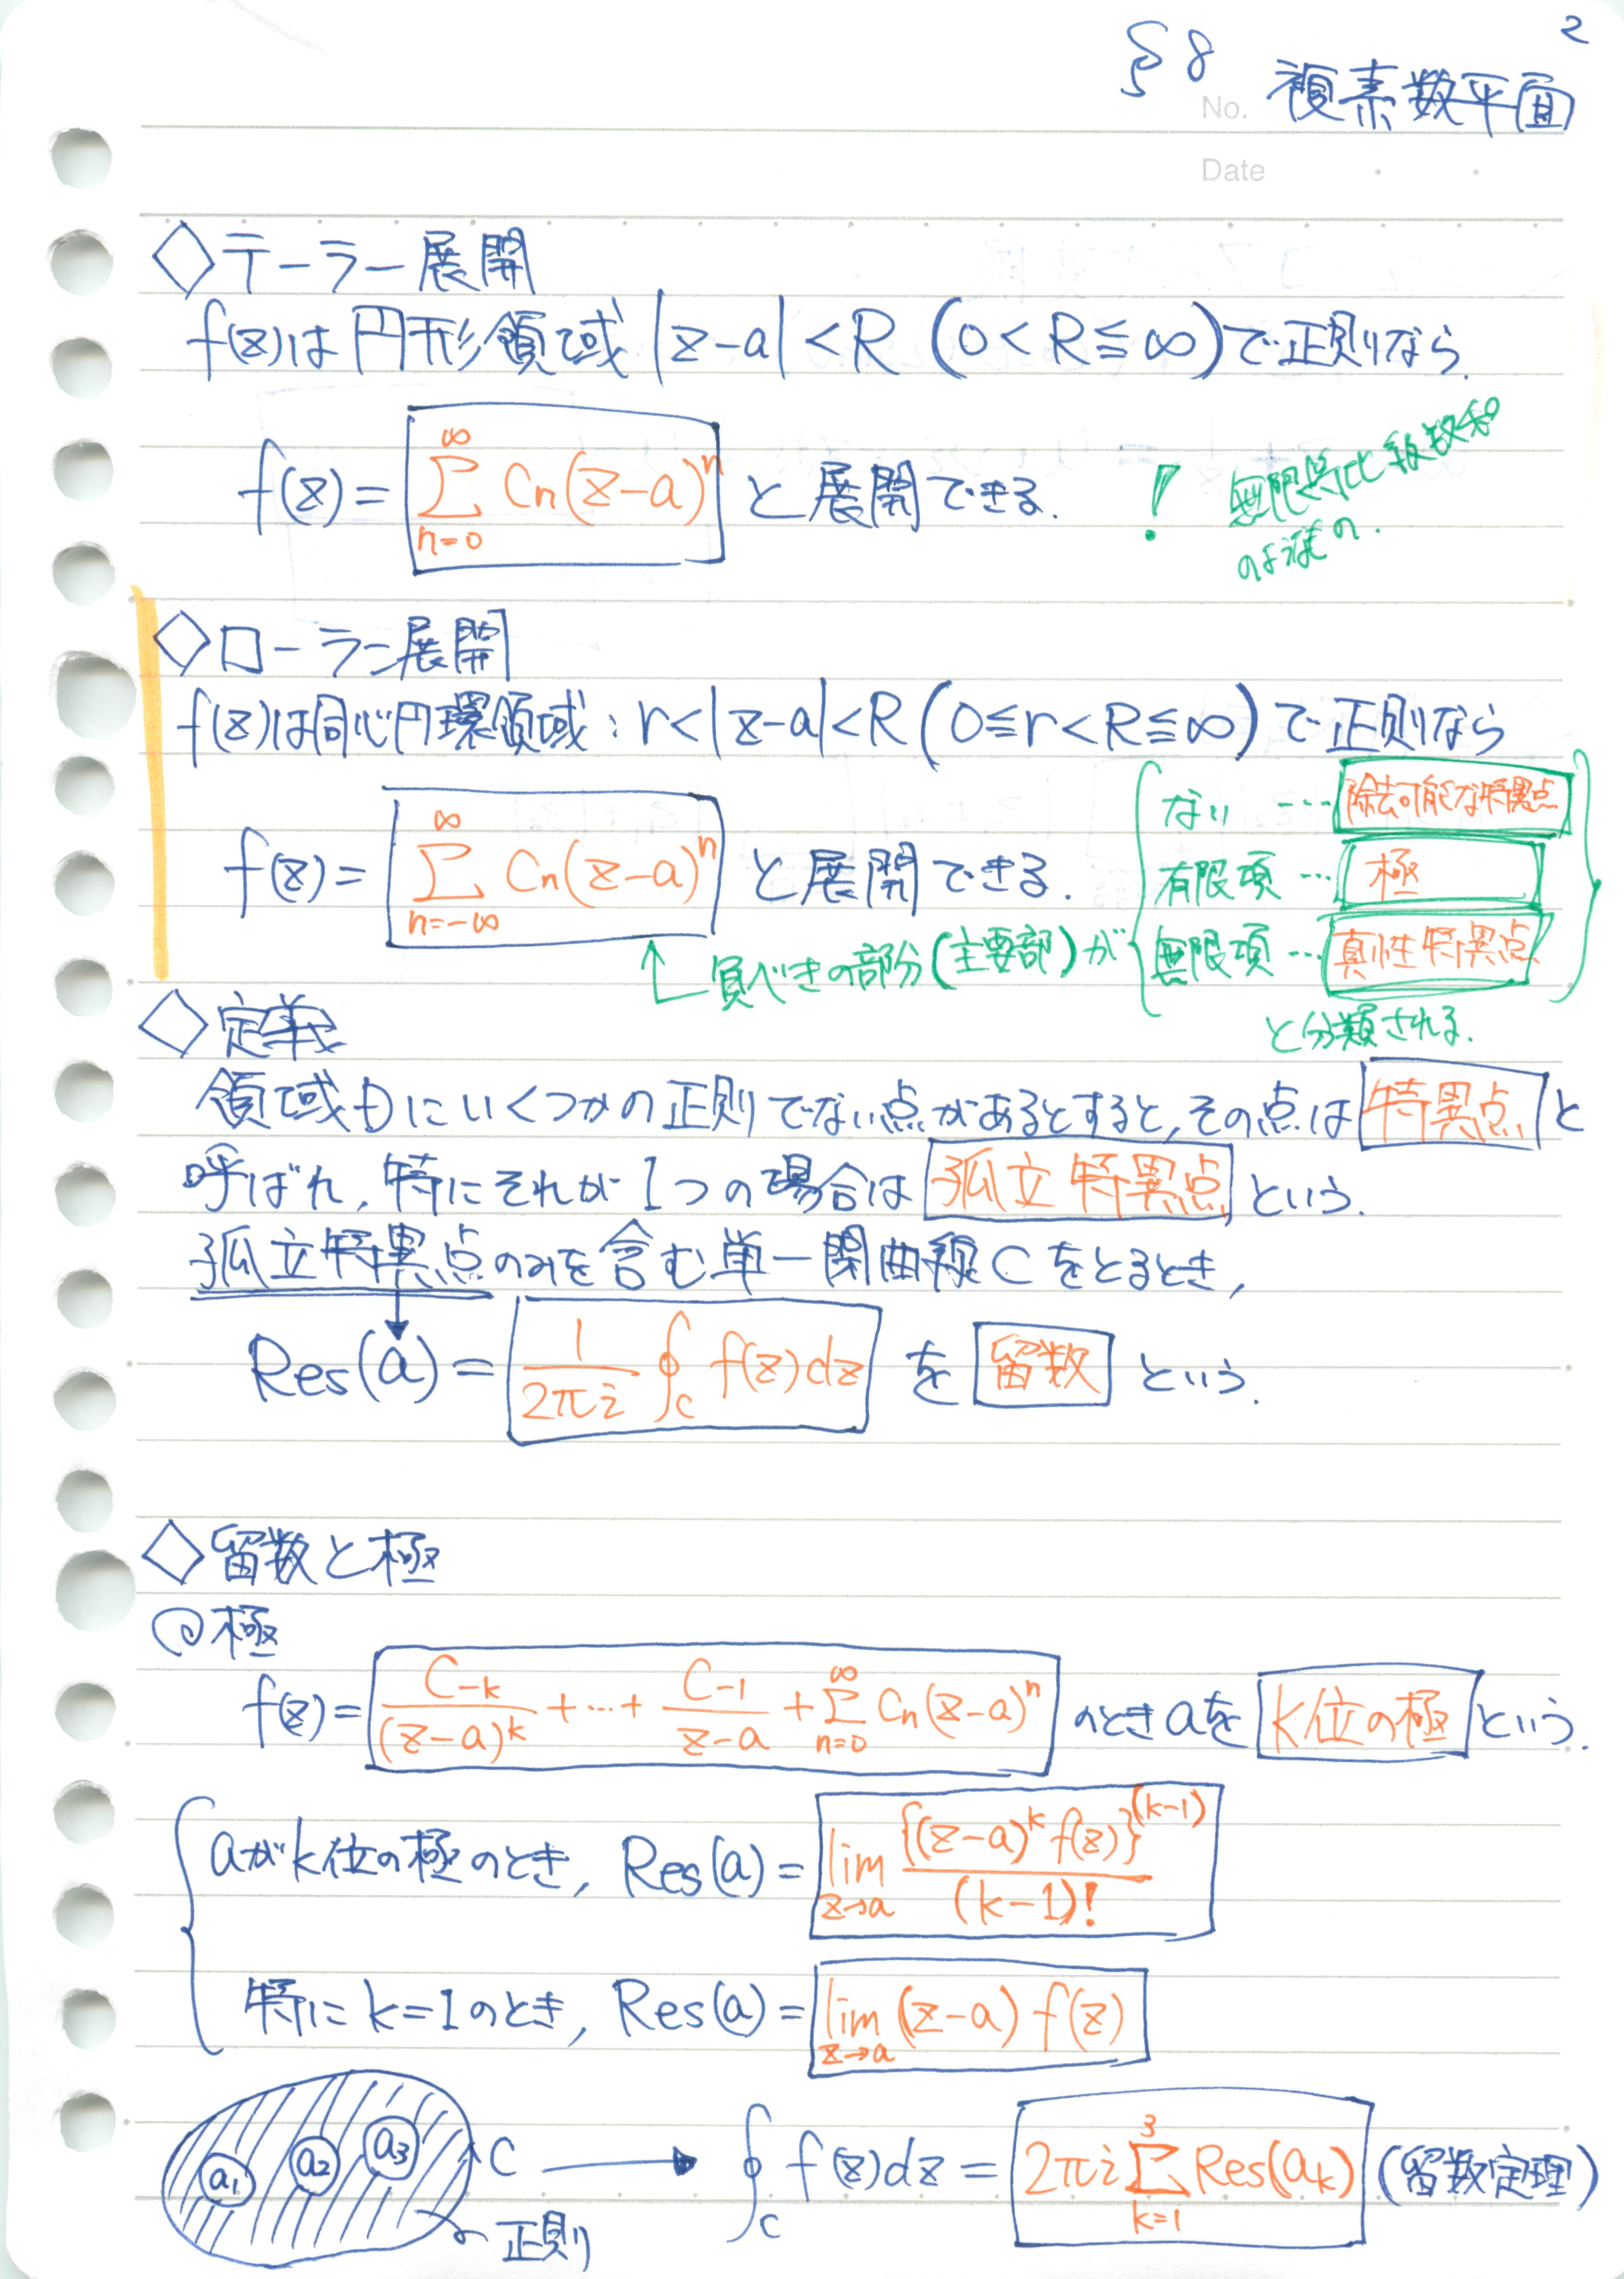 2
§8 複素数平面
No.
Date
◇テーラー展開
f(z)は円形領域 |z-a|<R (0<R≦∞)で正則なら
f(z)= ∞Σn=0 Cn(z-a)^n と展開できる. ! 無限等比級数和
◇ローラン展開
f(z)は同心円環領域：r<|z-a|<R(0≦r<R≦∞)で正則なら
f(z)= ∞Σn=-∞ Cn(z-a)^n と展開できる.
↑ 負べきの部分(主要部)が
ない … 除去可能な特異点
有限項 … 極
無限項 … 真性特異点
と分類される.
◇定義
領域Dにいくつかの正則でない点があるとすると,その点は 特異点 と
呼ばれ,特にそれが1つの場合は 孤立特異点 という.
孤立特異点のみを含む単一閉曲線Cをとるとき,
Res(a)= 1/2πi ∮c f(z)dz を 留数 という.
◇留数と極
極
f(z)= C-k/(z-a)^k +…+ C-1/z-a + ∞Σn=0 Cn(z-a)^n のときaを k位の極 という.
aがk位の極のとき, Res(a)= lim z→a {(z-a)^k f(z)}^(k-1)/(k-1)!
特にk=1のとき, Res(a)= lim z→a (z-a)f(z)
a1 a2 a3 C → ∮c f(z)dz = 2πi 3Σk=1 Res(ak) (留数定理)
正則